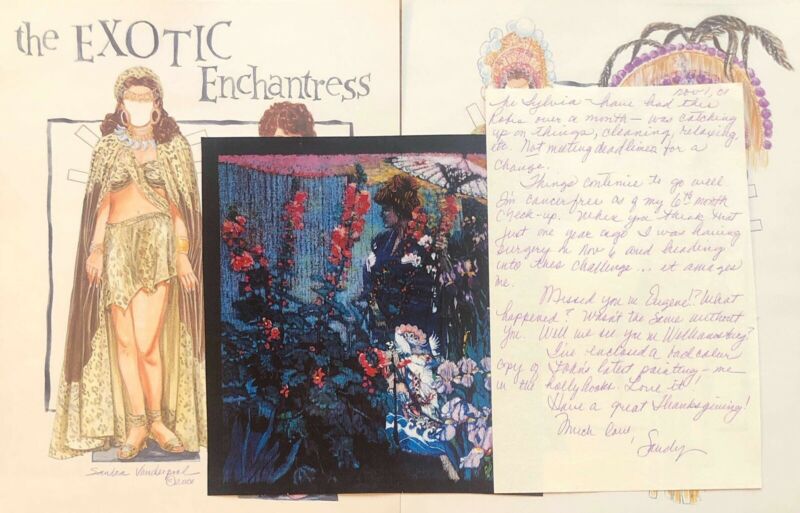 the EXOTIC
Enchantress
Sandra Vanderpool
© 2000
Nov 1, 01
Sylvia - have had this
over a month - was catching
up on things, cleaning, relaxing,
etc. Not meeting deadlines for a
change.
Things continue to go well.
I'm cancer free as of my 6th month
check-up. When you think that
just one year ago I was having
surgery on Nov 6 and heading
into this challenge... it amazes
me.
Missed you in Eugene!? What
happened? Wasn't the same without
you. Will we see you in Williamsburg?
I've enclosed a bad color
copy of John's latest painting - me
in the hollyhocks. Love it!
Have a great Thanksgiving!
Much love,
Sandy